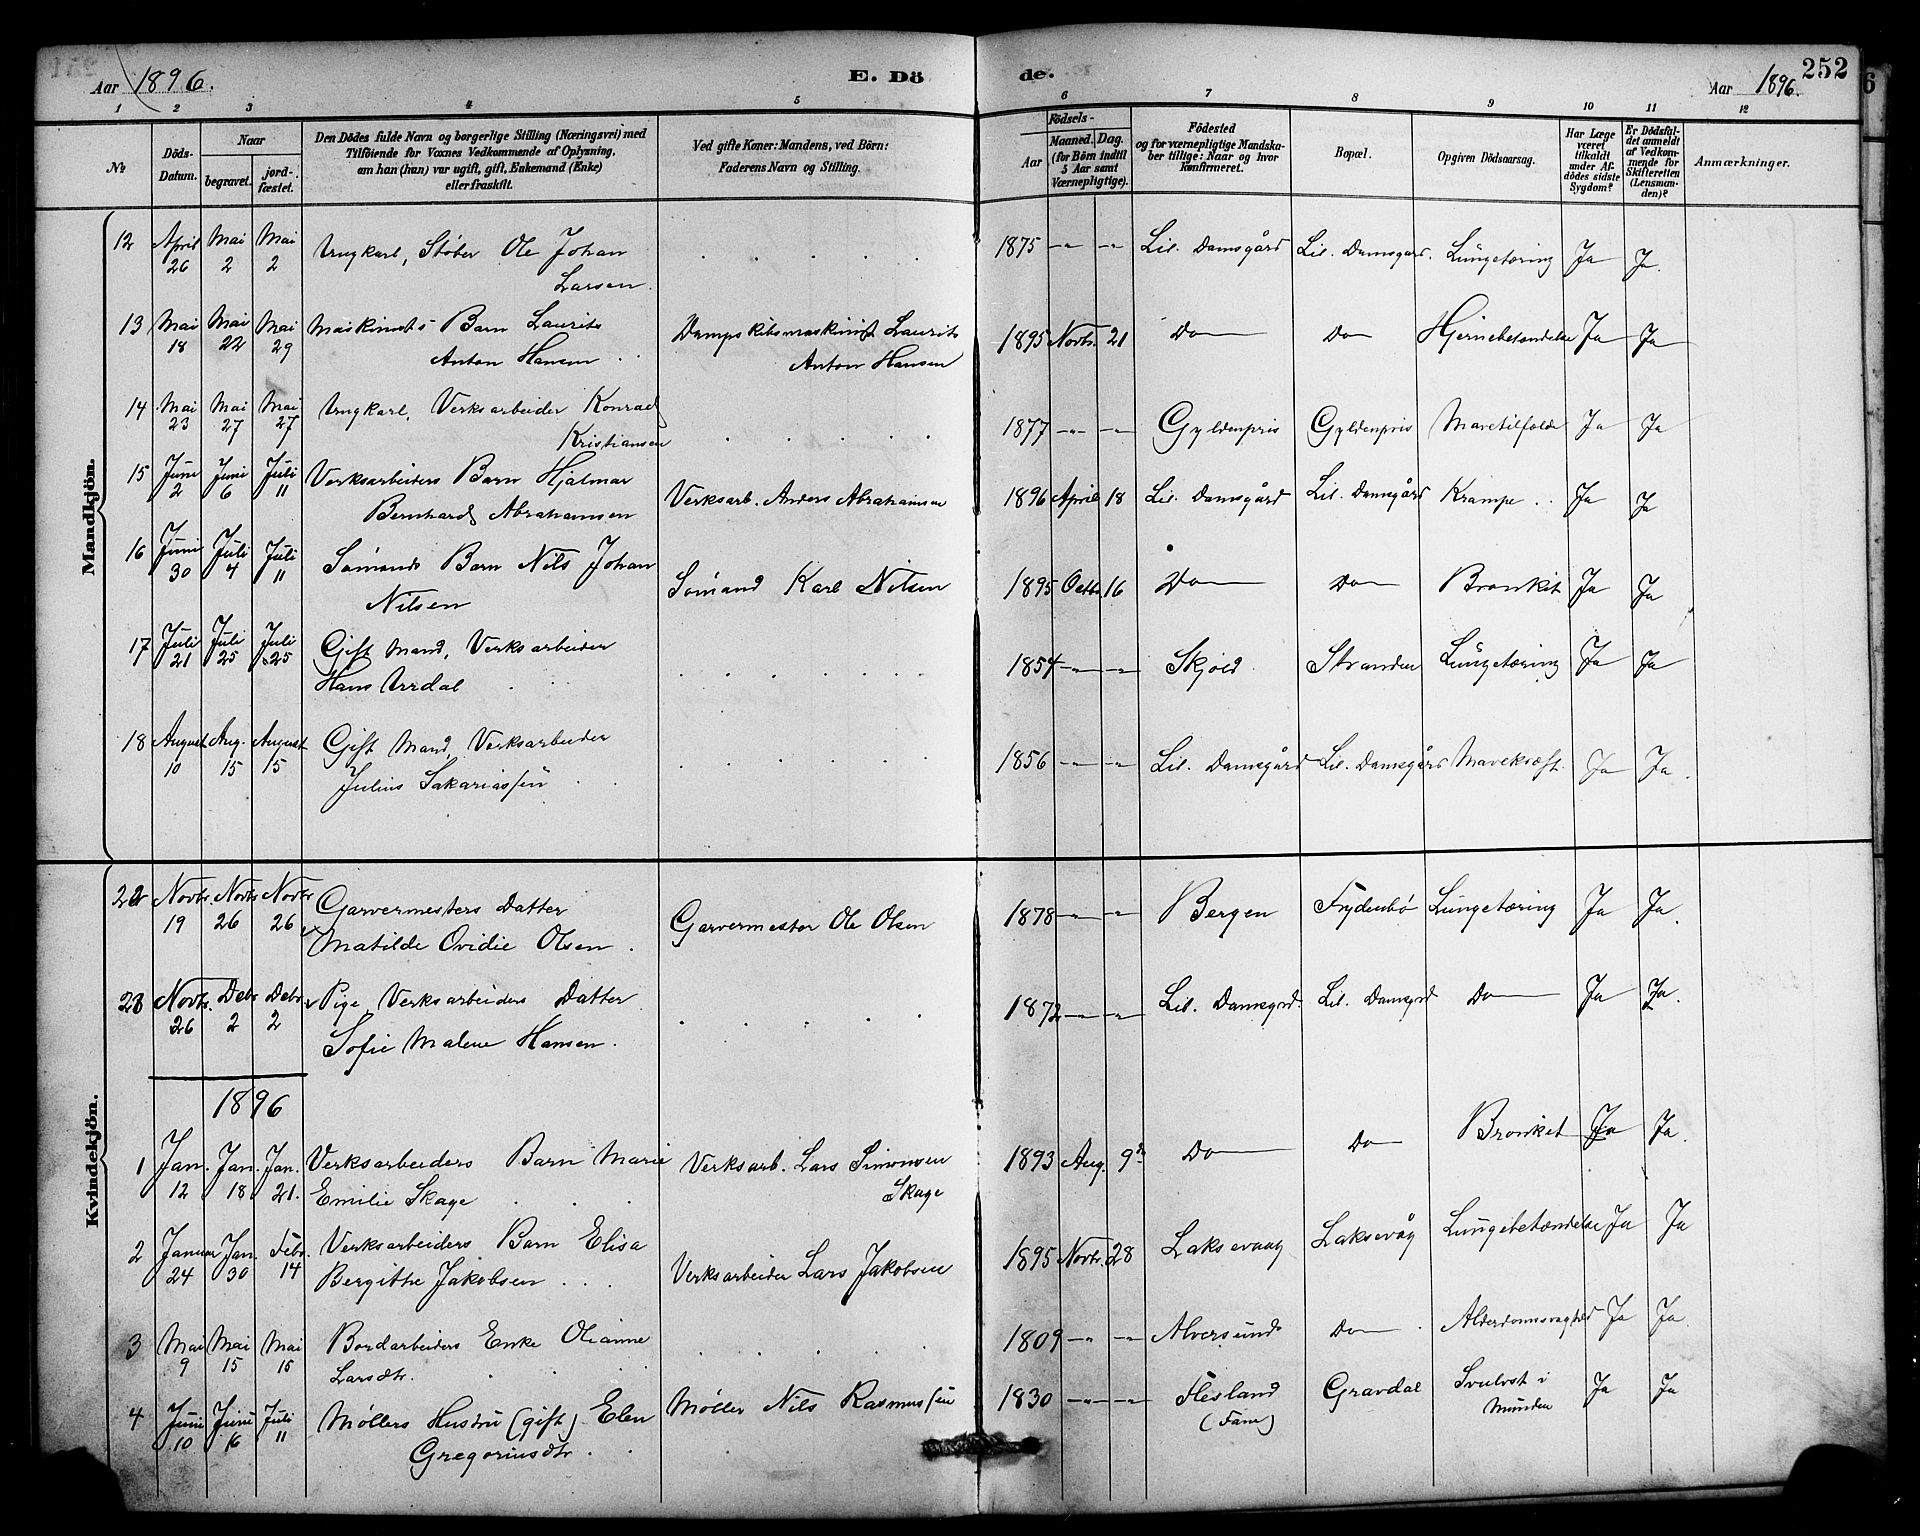 Aar 1896.
E. Dö
de.
Aar 1896.
252
1 2 3 4 5 6 7 8 9 10 11 12
No
Döds-Datum.
Naar
begravet.
jord-fæstet.
Den Dödes fulde Navn og borgerlige Stilling (Næringsvei) med
Tilföiende for Voxnes Vedkommende af Oplysning,
om han (hun) var ugift, gift, Enkemand (Enke)
eller fraskilt.
Ved gifte Koner: Mandens, ved Börn:
Faderens Navn og Stilling.
Födsels-
Aar
Maaned. Dag.
(for Börn indtil
5 Aar samt
Værnepligtige).
Födested
og for værnepligtige Mandska-
ber tillige: Naar og hvor
Konfirmeret.
Bopæl.
Opgiven Dödsaarsag.
Har Læge
været
tilkaldt
under Af-
dödes sidste
Sygdom?
Er Dödsfal-
det anmeldt
af Vedkom-
mende for
Skifteretten
(Lensman-
den)?
Anmærkninger.
Mandkjön.
12 April 26 Mai 2 Mai 2 Ungkarl, Støber Ole Johan
Larsen. 1875 -"- -"- Lil. Damsgård Lil. Damsgård. Lungetæring Ja Ja.
13 Mai 18 Mai 22 Mai 29 Maskinists Barn Laurits
Anton Hansen Dampskibsmaskinist Laurits
Anton Hansen 1895 Novbr. 21 Do Do Hjernebetændelse Ja Ja
14 Mai 23 Mai 27 Mai 27 Ungkarl, Verksarbeider Konrad
Kristiansen 1877 -"- -"- Gyldenpris Gyldenpris Mavetilfælde Ja Ja
15 Juni 2 Juni 6 Juli 11 Verksarbeiders Barn Hjalmar
Bernhard Abrahamsen Verksarb. Anders Abrahamsen 1896 April 18 Lil. Damsgård Lil. Damsgård Krampe Ja Ja
16 Juni 30 Juli 4 Juli 11 Sømands Barn Nils Johan
Nilsen Sømand Karl Nilsen 1895 Octbr 16 Do Do Bronkit Ja Ja
17 Juli 21 Juli 25 Juli 25 Gift Mand, Verksarbeider
Hans Urdal 1854 -"- -"- Skjold Stranden Lungetæring Ja Ja
18 August 10 Aug. 15 August 15 Gift Mand, Verksarbeider
Julius Sakariassen 1856 -"- -"- Lil. Damsgård Lil. Damsgård Mavekræft. Ja Ja.
Kvindekjön.
22 Novbr. 19 Novbr 26 Novbr 26 Garvermesters Datter
Matilde Ovidie Olsen. Garvermester Ole Olsen 1878 -"- -"- Bergen Frydenbø Lungetæring Ja Ja.
23 Novbr. 26 Debr 2 Debr 2 Pige, Verksarbeiders Datter
Sofie Malene Hansen. 1872 -"- -"- Lil. Damsgrd. Lil. Damsgrd Do Ja Ja.
1896
1 Jan. 12 Jan. 18 Jan. 21. Verksarbeiders Barn Marie
Emilie Skage Verksarb. Lars Simonsen
Skage 1893 Aug. 9 Do Do Bronkit Ja Ja.
2 Januar 24 Jan. 30 Febr. 14 Verksarbeiders Barn Elisa
Bergithe Jakobsen Verksarbeider Lars Jakobsen 1895 Novbr. 28 Laksevaag Laksevåg Lungebetændelse Ja Ja
3 Mai 9 Mai 15 Mai 15 Bordarbeiders Enke Olianne
Larsdtr. 1809 -"- -"- Alversund Do Alderdomssvaghed Ja Ja.
4 Juni 10 Juni 16 Juli 11 Møllers Hustru (gift) Elen
Gregoriusdtr. Møller Nils Rasmussen 1830 -"- -"- Flesland
(Fane) Gravdal Svulst i
Munden Ja Ja